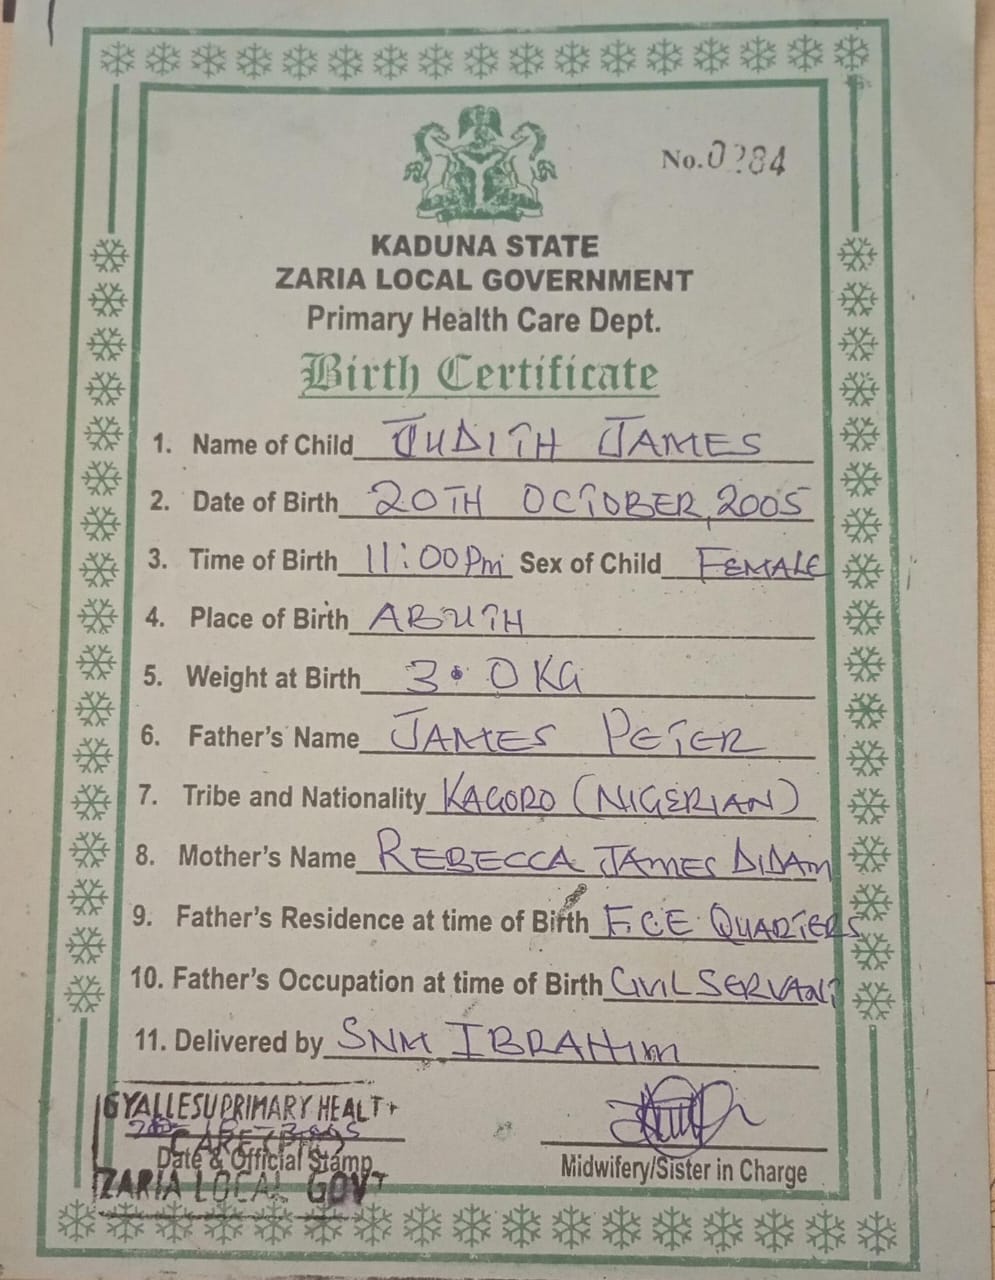 No. 0284
KADUNA STATE
ZARIA LOCAL GOVERNMENT
Primary Health Care Dept.
Birth Certificate
1. Name of Child JUDITH JAMES
2. Date of Birth 20TH OCTOBER, 2005
3. Time of Birth 11:00Pm Sex of Child FEMALE
4. Place of Birth ABUTH
5. Weight at Birth 3.0KG
6. Father's Name JAMES PETER
7. Tribe and Nationality KAGORO (NIGERIAN)
8. Mother's Name REBECCA JAMES DIDAM
9. Father's Residence at time of Birth F.C.E QUARTERS
10. Father's Occupation at time of Birth CIVIL SERVANT
11. Delivered by SNM IBRAHIM
GYALLESU PRIMARY HEALTH
CARE
Date & Official Stamp
ZARIA LOCAL GOVT
Midwifery/Sister in Charge